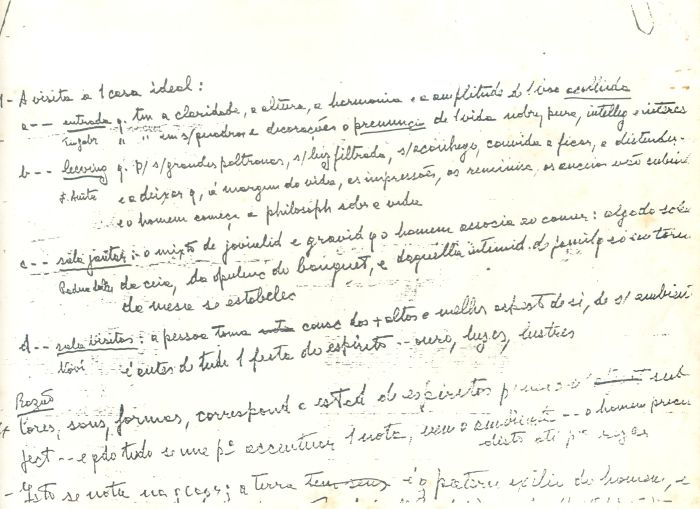 1- A visita a 1 casa ideal:
a -- entrada q. tem a claridade, a altura, a harmonia e a amplitude d 1 boa acolhida
" " em s/ quadros e decorações o prenuncio de 1 vida nobre, pura, intellig e interes
b -- q. p/ s/ grandes poltronas, s/ luz filtrada, s/ aconchego, convida a ficar, a distender-
e a deixar q, á margem da vida, as impressões, as reminisc, os anceios vão subin
e o homem começa a philosoph sobre a vida
c -- sala jantar: o mixto de jovialid e gravid q o homem associa ao comer: algo do
da ceia, da opulenc do banquet, e daquella intimid. de familia q só em torn
da mesa se estabelec
d -- sala visitas: a pessoa toma consc dos + altos e melhor aspect de si, de s/ ambien
é antes de tudo 1 festa do espirito -- ouro, luzes, lustres
Razão
Cores, sons, formas, correspond a estad d espiritos
ject -- e qdo tudo se une pª accentuar 1 nota, vem o ambiente -- o homem procu
disto até pª rezar
- Isto se nota na a terra tem seus é a patria exilio do homem, e